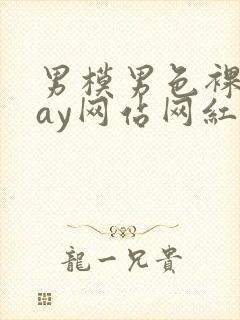 男模男色裸
ay网估网紅
龍一兄貴